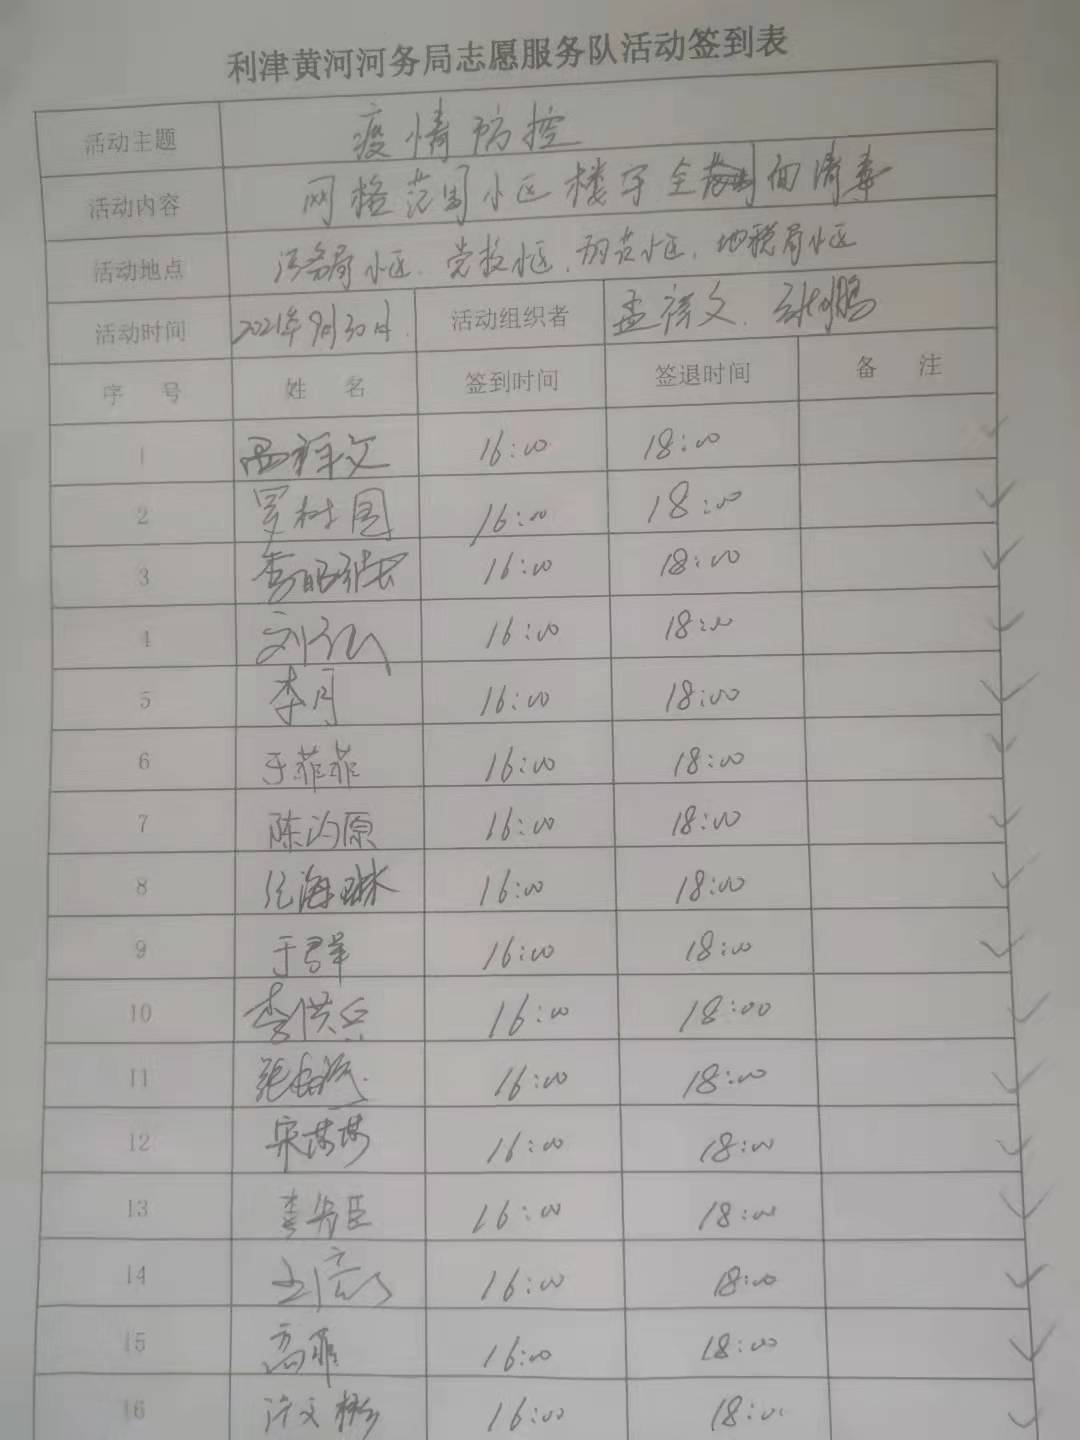 利津黄河河务局志愿服务队活动签到表
活动主题 疫情防控
活动内容 网格范围小区楼宇全面消毒
活动地点 河务局小区、党校小区、防范小区、地税局小区
活动时间 2021年9月30日 活动组织者 孟祥文、
序 号 姓 名 签到时间 签退时间 备 注
1 孟祥文 16:00 18:00
2 罗树国 16:00 18:00
3 16:00 18:00
4 16:00 18:00
5 李月 16:00 18:00
6 于菲菲 16:00 18:00
7 陈沟原 16:00 18:00
8 16:00 18:00
9 于君军 16:00 18:00
10 李洪兵 16:00 18:00
11 16:00 18:00
12 宋琳琳 16:00 18:00
13 16:00 18:00
14 16:00 18:00
15 高菲 16:00 18:00
16 许文彬 16:00 18:00